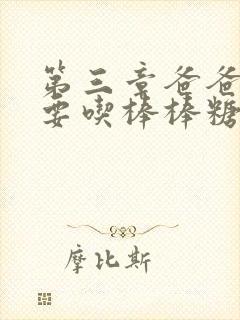 第三章爸爸
要喫棒棒糖
摩比斯